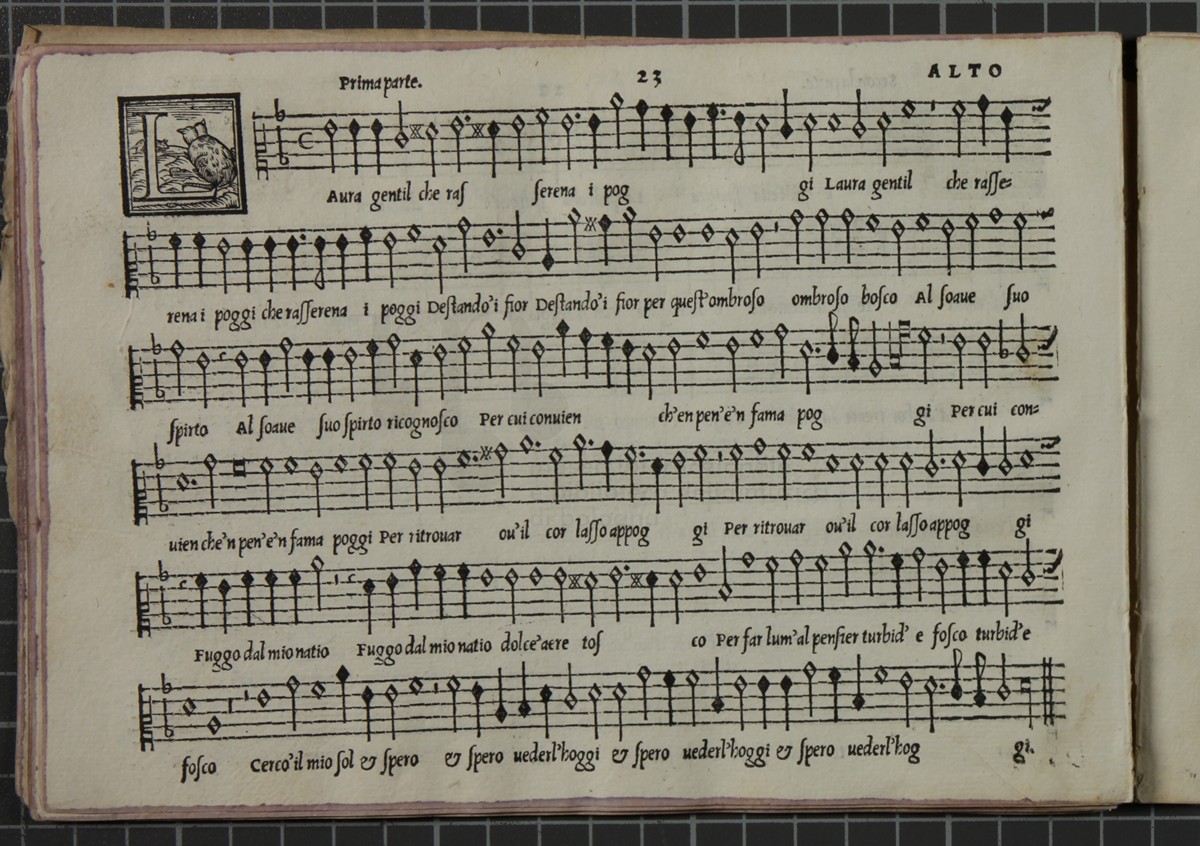 Prima parte. 23 ALTO
L Aura gentil che ras serena i pog gi Laura gentil che rasse=
rena i poggi che rasserena i poggi Destando'i fior Destando'i fior per quest'ombroso ombroso bosco Al soaue suo
spirto Al soaue suo spirto ricognosco Per cui conuien ch'en pen'e'n fama pog gi Per cui con=
uien che'n pen'e'n fama poggi Per ritrouar ou'il cor lasso appog gi Per ritrouar ou'il cor lasso appog gi
Fuggo dal mio natio Fuggo dal mio natio dolce'aere tos co Per far lum'al pensier turbid' e fosco turbid'e
fosco Cerco'il mio sol & spero & spero uederl'hoggi & spero uederl'hoggi & spero uederl'hog gi.